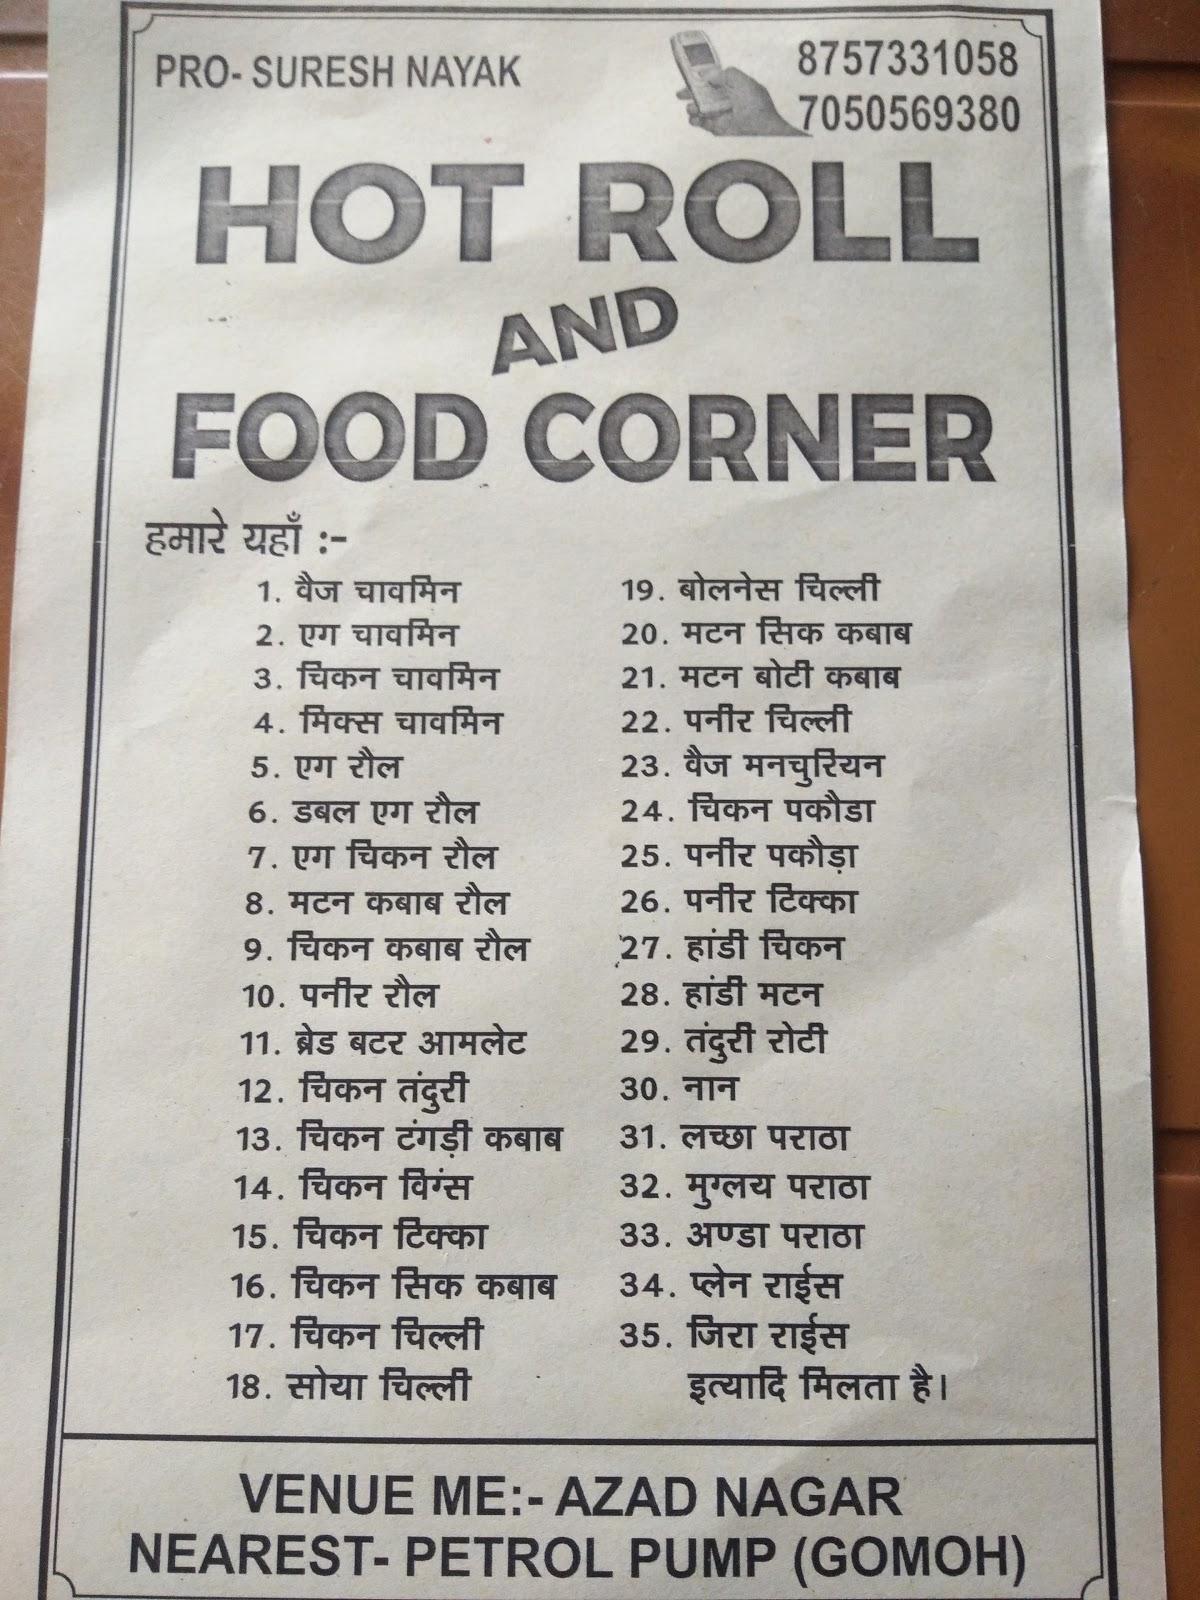 PRO- SURESH NAYAK
8757331058
7050569380
HOT ROLL
AND
FOOD CORNER
हमारे यहाँ :-
1. वैज चावमिन
2. एग चावमिन
3. चिकन चावमिन
4. मिक्स चावमिन
5. एग रौल
6. डबल एग रौल
7. एग चिकन रौल
8. मटन कबाब रौल
9. चिकन कबाब रौल
10. पनीर रौल
11. ब्रेड बटर आमलेट
12. चिकन तंदुरी
13. चिकन टंगड़ी कबाब
14. चिकन विग्ंस
15. चिकन टिक्का
16. चिकन सिक कबाब
17. चिकन चिल्ली
18. सोया चिल्ली
19. बोलनेस चिल्ली
20. मटन सिक कबाब
21. मटन बोटी कबाब
22. पनीर चिल्ली
23. वैज मनचुरियन
24. चिकन पकौडा
25. पनीर पकौड़ा
26. पनीर टिक्का
27. हांडी चिकन
28. हांडी मटन
29. तंदुरी रोटी
30. नान
31. लच्छा पराठा
32. मुग्लय पराठा
33. अण्डा पराठा
34. प्लेन राईस
35. जिरा राईस
इत्यादि मिलता है।
VENUE ME:- AZAD NAGAR
NEAREST- PETROL PUMP (GOMOH)